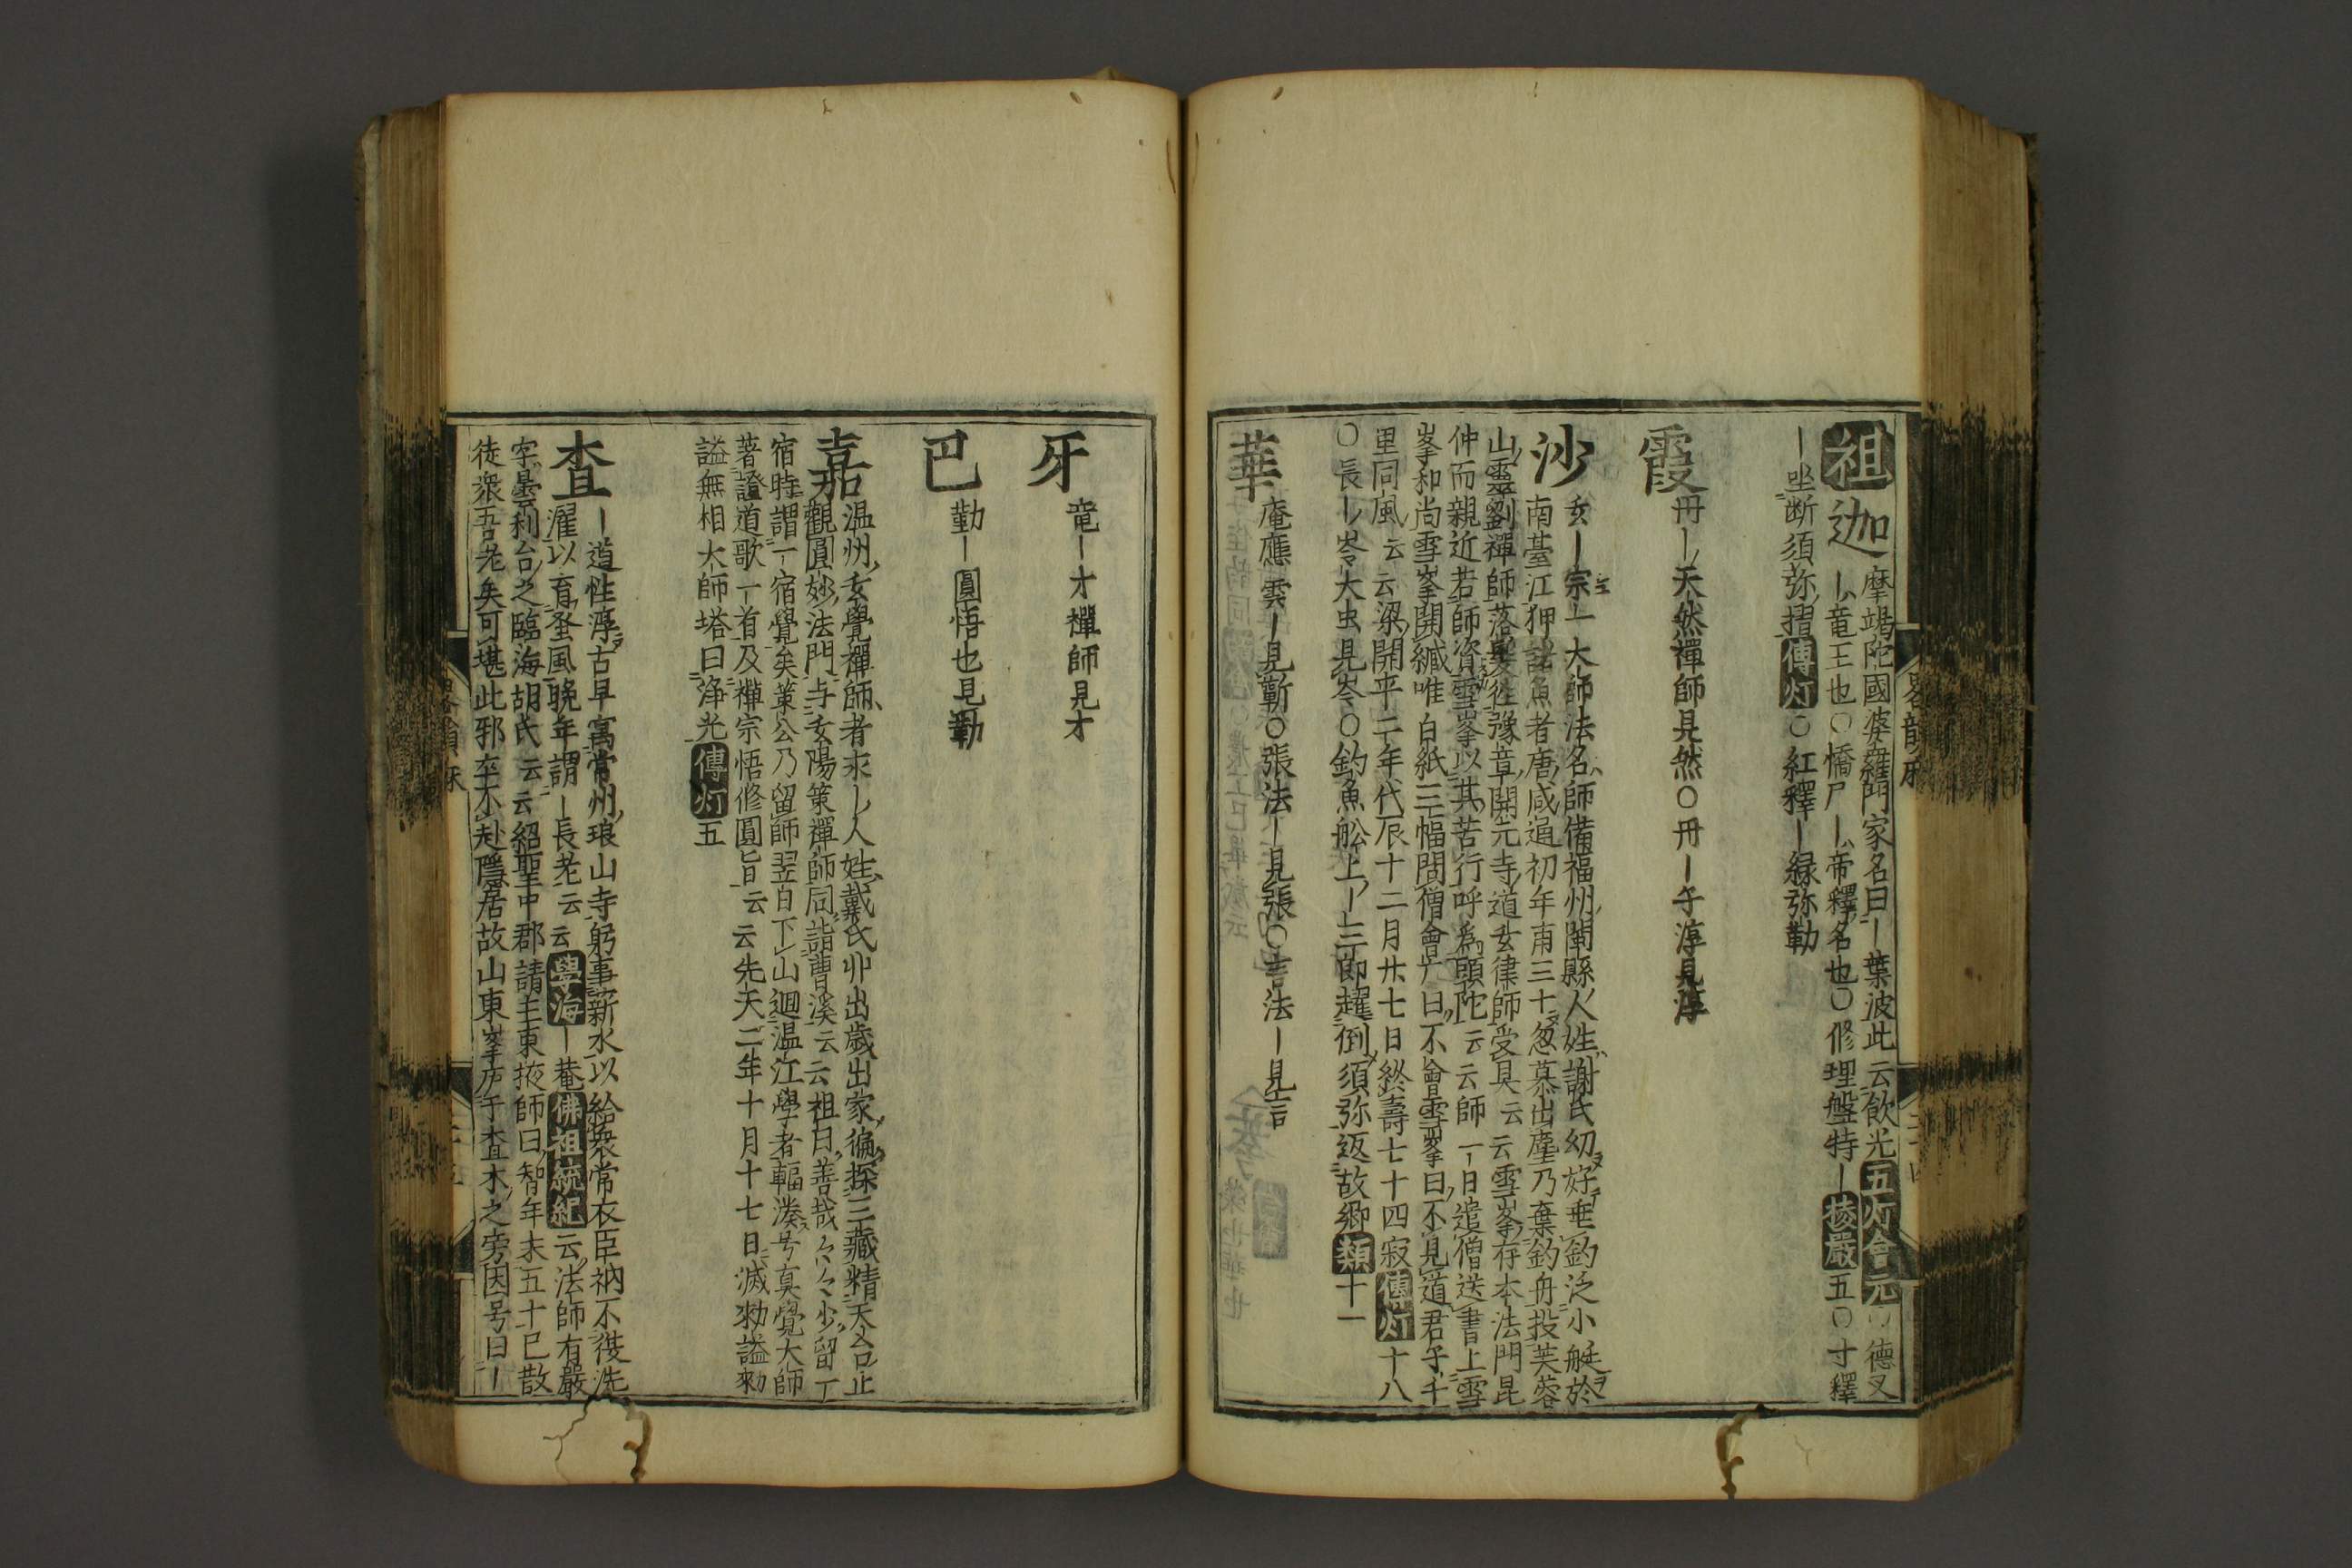 祖迦 摩竭陀國婆羅門家名曰ー葉波此云飲光五灯會元○德叉
ー竜王也○憍尸ー帝釋名也○修理盤特ー楞嚴五○寸釋
ー坐断須弥摺傳灯○紅釋ー緑弥勒
霞 丹ー天然禪師見然○丹ー子淳見淳
沙 玄ー宗一大師法名師備福州閩縣人姓謝氏幼好垂釣泛小艇於
南臺江狎諸魚者唐咸通初年甫三十忽慕出塵乃棄釣舟投芙蓉
山靈訓禪師落髮徃豫章開元寺道玄律師受具云云雪峯存本法門昆
仲而親近若師資雪峯以其苦行呼為頭陀云云師一日遣僧送書上雪
峯和尚雪峯開緘唯白紙三幅問僧會広曰不會雪峯曰不見道君子千
里同風云云梁開平二年代辰十二月廿七日終壽七十四寂傳灯十八
○長ー岑大虫見岑○釣魚舩上ー三郎趯倒須弥返故郷類十一
華 庵應雲ー見蘄○張法ー見張○言法ー見言
牙 竜ー才禪師見才
巴 勤ー圓悟也見勤
嘉 温州玄覺禪師者永ー人姓戴氏丱歲出家徧探三藏精天台止
觀圓妙法門与玄陽策禪師同詣曹溪云云祖曰善哉々々少留一
宿時謂一宿覺矣策公乃留師翌日下山迴温江學者輻湊号真覺大師
著證道歌一首及禪宗悟修圓旨云云先天二年十月十七日滅勑謚
謚無相大師塔曰浄光傳灯五
査 ー道性淳古早寓常州琅山寺躬事薪水以給衆常衣臣衲不復洗
濯以育蚤風晚年謂ー長老云云學海ー菴佛祖統紀云法師有嚴
字曇利台之臨海胡氏云云紹聖中郡請主東掖師曰智年未五十巳散
徒衆吾老矣可堪此邪卒不赴隱居故山東峯庐于査木之旁因号曰ー